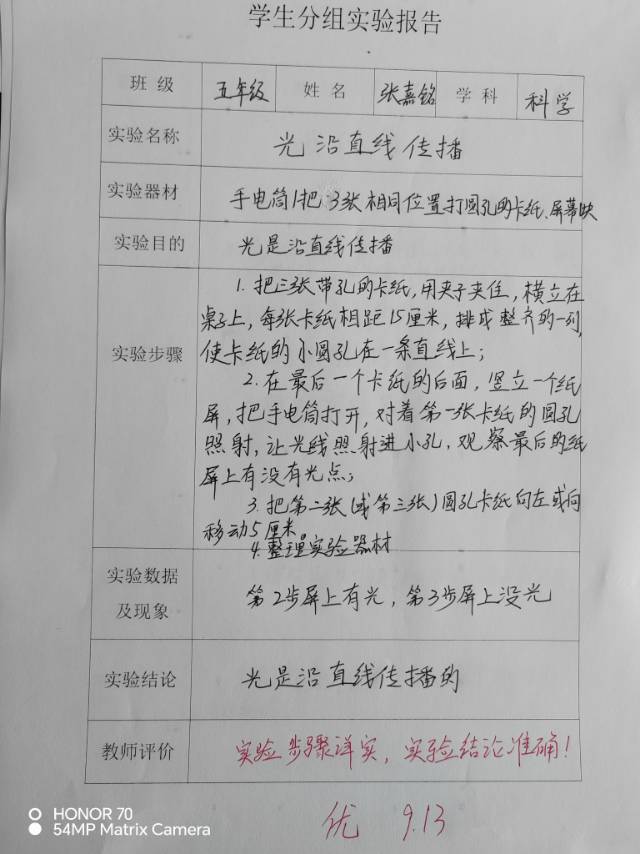 学生分组实验报告
班 级 五年级 姓 名 张嘉铭 学 科 科学
实验名称 光沿直线传播
实验器材 手电筒1把 3张相同位置打圆孔的卡纸、屏幕
实验目的 光是沿直线传播
实验步骤
1. 把三张带孔的卡纸,用夹子夹住,横立在
桌子上,每张卡纸相距15厘米,排成整齐的一列,
使卡纸的小圆孔在一条直线上;
2. 在最后一个卡纸的后面,竖立一个纸
屏,把手电筒打开,对着第一张卡纸的圆孔
照射,让光线照射进小孔,观察最后的纸
屏上有没有光点;
3. 把第二张(或第三张)圆孔卡纸向左或向
移动5厘米
4. 整理实验器材
实验数据
及现象
第2步屏上有光,第3步屏上没光
实验结论 光是沿直线传播的
教师评价 实验步骤详实,实验结论准确!
优 9.13
HONOR 70
54MP Matrix Camera